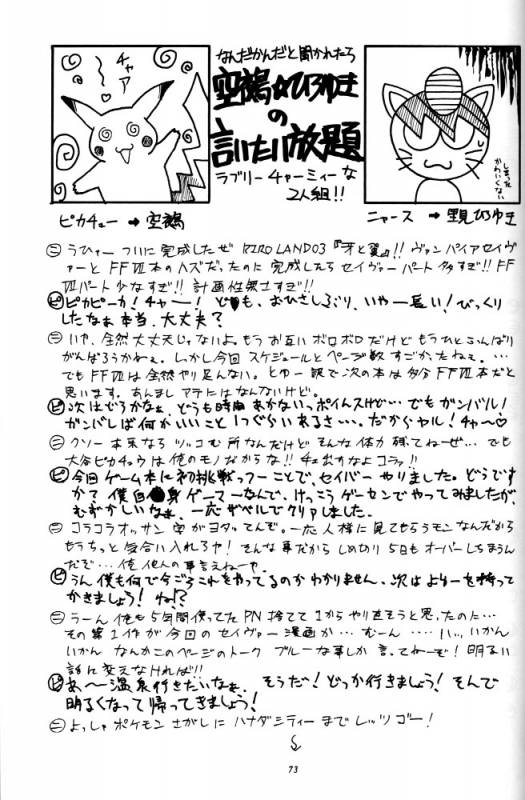 チャア
なんだかんだと聞かれたら
空鵺☆ひろゆき
の
言いたい放題
ラブリーチャーミィーな
2人組!!
しまった
かわいくない
ピカチュー → 空鵺
ニャース → 里見ひろゆき
ニ うひゃー ついに完成したぜ KIRO LAND 03『牙と翼』!! ヴァンパイアセイヴ
ァーと FFⅦ本のハズだったのに完成したらセイヴァーパート多すぎ!! FF
Ⅶパート少なすぎ!! 計画性無さすぎ!!
ピ ピカピーカ! チャー! ども、おひさしぶり、いやー長い! びっくり
したなぁ本当、大丈夫?
ニ いや、全然大丈夫じゃないよ。もうお互いボロボロだけどもうひとふんばり
がんばろうかねぇ。しかし今回スケジュールとページ数すごかったねぇ。…
でもFFⅦは全然やり足んない。とゆー訳で次の本は多分FFⅦ本だと
思います。あんましアテにはなんないけど。
ピ 次はどうかなぁ、どうも時間あかない。ポイんスけど…でもガンバル!
ガンバレば何かいいこと1つぐらいあるさ…。だからヤル! チャ〜♡
ニ クソー本来ならツッコむ所なんだけどそんな体力残ってねーぜ…でも
大谷ピカチュウは俺のモノだからな!! チェ出すなよコラァ!!
ピ 今回ゲーム本に初挑戦っつーことで、セイバーやりました。どうです
かで僕自身ゲーマーなんで、けっこうゲーセンでやってみましたが、
むずかしいなぁ、一応ザベルでクリアしました。
ニ コラコラオッサン字がヨタってんぞ。一応人様に見てもらうモンなんだから
もうちっと気合い入れろヤ! そんな事だからしめ切り5日もオーバーしちまうん
だぞ…俺他人の事言えねーや。
ピ うん僕も何で今ごろこれをやってるのかわかりません、次はよゆーを持って
かきましょう! ね!?
ニ うーん俺も5年間使ってたPN捨てて1からやり直そうと思ったのに…
その第1作が今回のセイヴァー漫画か…むーん……ハッ、いかん
いかん なんかこのページのトーク ブルーな事しか言ってねーぞ! 明るい
話に変えなければ!!
ピ あ〜温泉行きたいなぁ、そうだ! どっか行きましょう! そんで
明るくなって帰ってきましょう!
ニ よっしゃポケモンさがしにハナダシティーまでレッツゴー!
73